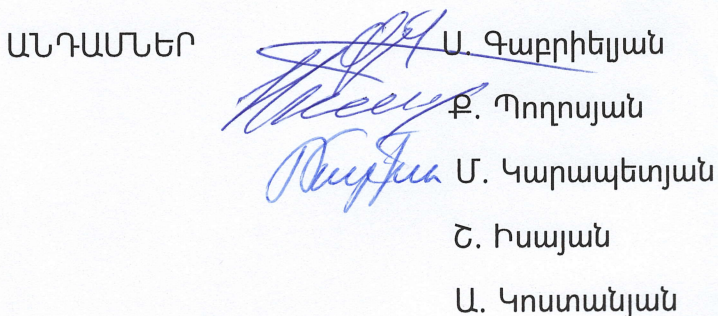 ԱՆԴԱՄՆԵՐ Ս. Գաբրիելյան
Ք. Պողոսյան
Մ. Կարապետյան
Շ. Իսայան
Ա. Կոստանյան